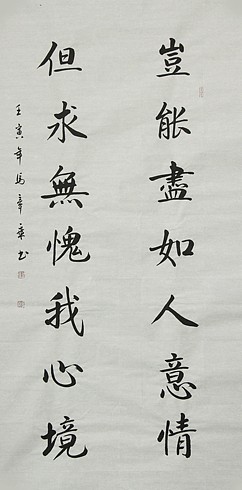 豈能盡如人意情
但求無愧我心境
壬寅年馬章乘书